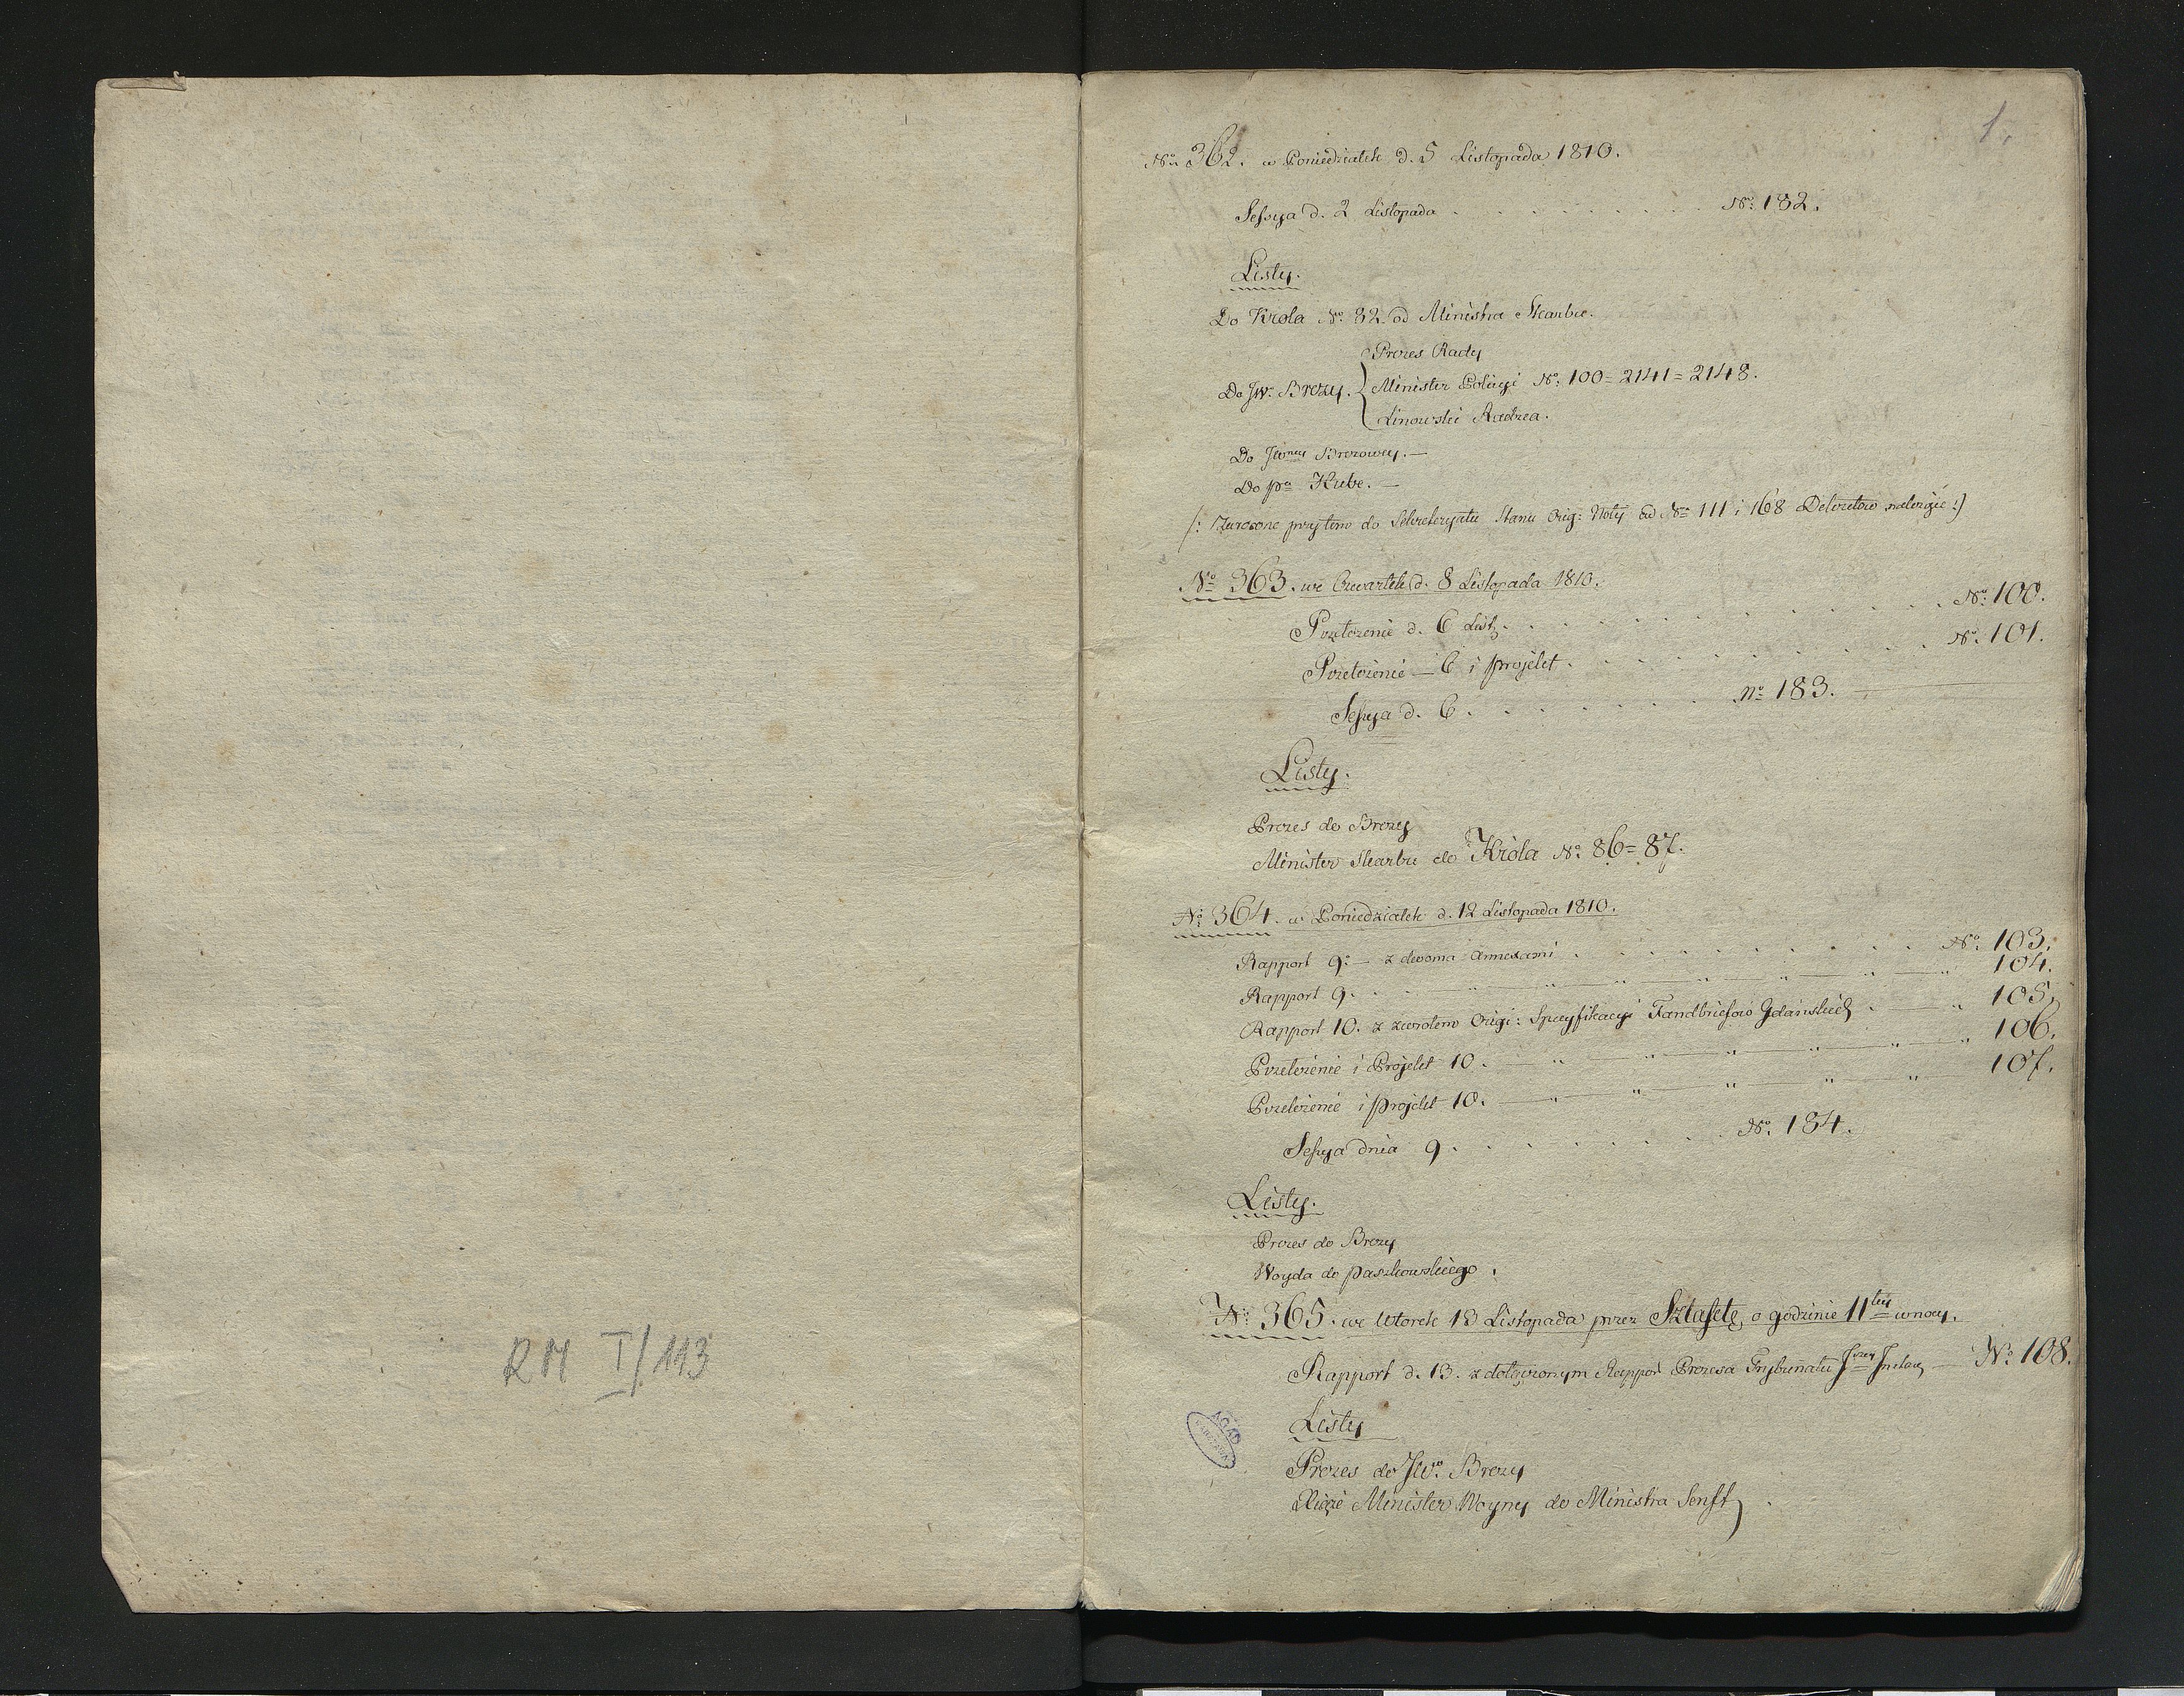 RM I/113
1.
No 362. w Poniedziałek d. 5 Listopada 1810.
Sessya d. 2 Listopada . . . . . . . . . No: 182.
Listy.
Do Krola No: 82 od Ministra Skarbu.
Prezes Rady
Do JW. Brezy. Minister Policyi No: 100 = 2141 = 2148.
Linowski Radzca.
Do JWney Brezowey. —
Do pa Kube. —
/: Zwrocone przytem do Sekretaryatu Stanu Orig: Noty do No 111 i 168 Dekretow należące :/
No 363. we Czwartek d. 8 Listopada 1810.
Przełożenie d. 6 List. . . . . . . . . . . No: 100.
Przełożenie — 6 i projekt . . . . . . . . . No: 101.
Sessya d. 6 . . . . . . . . no 183.
Listy.
Prezes do Brezy
Minister Skarbu do Króla No: 86 = 87.
No: 364. w Poniedziałek d. 12 Listopada 1810.
Rapport 9: — z dwoma Annexami . . . . . . . . . No: 103.
Rapport 9. . . — " — " — " — " — " — " — " 104.
Rapport 10. z zwrotem Origi: Specyfikacyi Fandbriefow Gdańskich . — " 105.
Przełożenie i Projekt 10. — " — " — " — " — " — " 106.
Przełożenie i projekt 10. — " — " — " — " — " 107.
Sessya dnia 9 . . . . . . . . No: 184.
Listy.
Prezes do Brezy
Woyda do Paszkowskiego .
No: 365. we Wtorek 13 Listopada przez Sztafetę, o godzinie 11tey w nocy.
Rapport d. 13. z dołączonym Rappor Prezesa Trybunału — No 108.
Listy
Prezes do JWo. Brezy
Xiąże Minister Woyny do Ministra Senfft .
AGAD